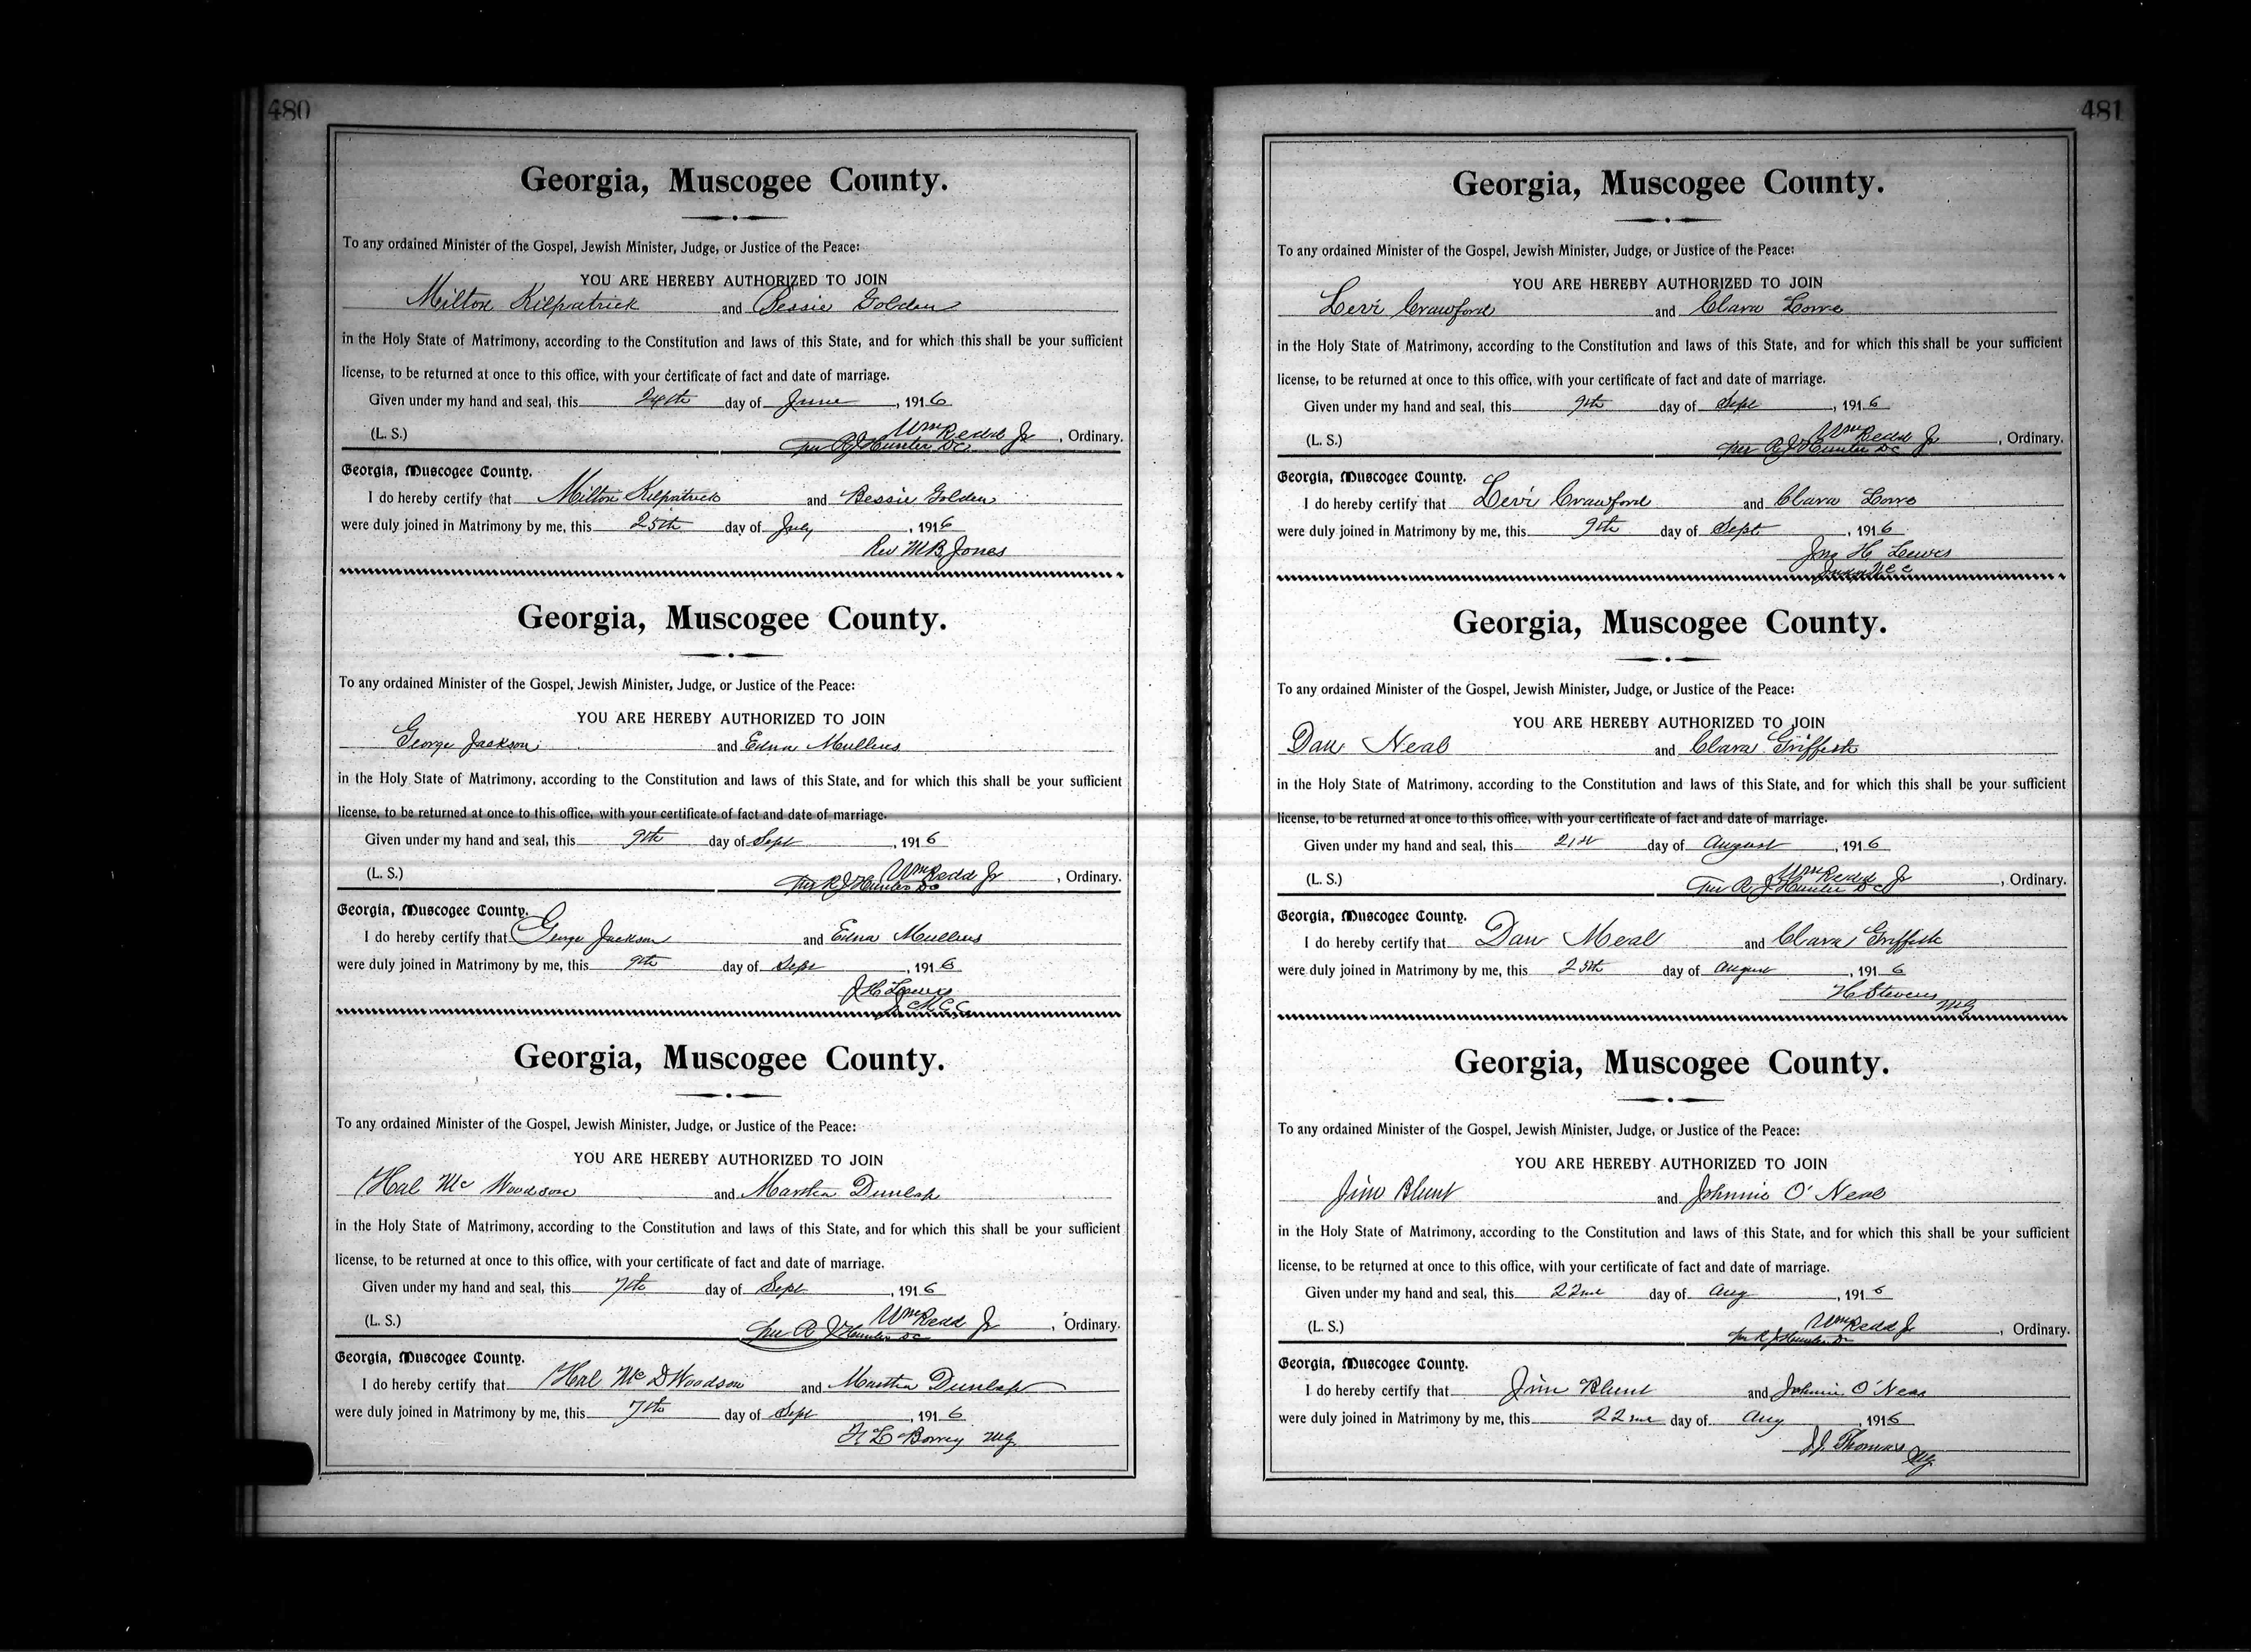 480
Georgia, Muscogee County.
To any ordained Minister of the Gospel, Jewish Minister, Judge, or Justice of the Peace:
YOU ARE HEREBY AUTHORIZED TO JOIN
Milton Kilpatrick and Bessie Golden
in the Holy State of Matrimony, according to the Constitution and laws of this State, and for which this shall be your sufficient
license, to be returned at once to this office, with your certificate of fact and date of marriage.
Given under my hand and seal, this 24th day of June, 1916
(L. S.) Wm Redd Jr, Ordinary.
per R J Hunter DC
Georgia, Muscogee County.
I do hereby certify that Milton Kilpatrick and Bessie Golden
were duly joined in Matrimony by me, this 25th day of July, 1916
Rev M B Jones
Georgia, Muscogee County.
To any ordained Minister of the Gospel, Jewish Minister, Judge, or Justice of the Peace:
YOU ARE HEREBY AUTHORIZED TO JOIN
George Jackson and Edna Mullins
in the Holy State of Matrimony, according to the Constitution and laws of this State, and for which this shall be your sufficient
license, to be returned at once to this office, with your certificate of fact and date of marriage.
Given under my hand and seal, this 9th day of Sept, 1916
(L. S.) Wm Redd Jr, Ordinary.
per R J Hunter DC
Georgia, Muscogee County.
I do hereby certify that George Jackson and Edna Mullins
were duly joined in Matrimony by me, this 9th day of Sept, 1916
J H Lewis
Georgia, Muscogee County.
To any ordained Minister of the Gospel, Jewish Minister, Judge, or Justice of the Peace:
YOU ARE HEREBY AUTHORIZED TO JOIN
Hal Mc Woodson and Martha Dunlap
in the Holy State of Matrimony, according to the Constitution and laws of this State, and for which this shall be your sufficient
license, to be returned at once to this office, with your certificate of fact and date of marriage.
Given under my hand and seal, this 7th day of Sept, 1916
(L. S.) Wm Redd Jr, Ordinary.
per R J Hunter DC
Georgia, Muscogee County.
I do hereby certify that Hal Mc D Woodson and Martha Dunlap
were duly joined in Matrimony by me, this 7th day of Sept, 1916
MG
481
Georgia, Muscogee County.
To any ordained Minister of the Gospel, Jewish Minister, Judge, or Justice of the Peace:
YOU ARE HEREBY AUTHORIZED TO JOIN
Levi Crawford and Clara Lowe
in the Holy State of Matrimony, according to the Constitution and laws of this State, and for which this shall be your sufficient
license, to be returned at once to this office, with your certificate of fact and date of marriage.
Given under my hand and seal, this 9th day of Sept, 1916
(L. S.) Wm Redd Jr, Ordinary.
per R J Hunter DC
Georgia, Muscogee County.
I do hereby certify that Levi Crawford and Clara Lowe
were duly joined in Matrimony by me, this 9th day of Sept, 1916
Jno H Lewis
Georgia, Muscogee County.
To any ordained Minister of the Gospel, Jewish Minister, Judge, or Justice of the Peace:
YOU ARE HEREBY AUTHORIZED TO JOIN
Dan Neal and Clara Griffith
in the Holy State of Matrimony, according to the Constitution and laws of this State, and for which this shall be your sufficient
license, to be returned at once to this office, with your certificate of fact and date of marriage.
Given under my hand and seal, this 21st day of August, 1916
(L. S.) Wm Redd Jr, Ordinary.
per R J Hunter DC
Georgia, Muscogee County.
I do hereby certify that Dan Neal and Clara Griffith
were duly joined in Matrimony by me, this 25th day of August, 1916
H Stevens MG
Georgia, Muscogee County.
To any ordained Minister of the Gospel, Jewish Minister, Judge, or Justice of the Peace:
YOU ARE HEREBY AUTHORIZED TO JOIN
Jim Blunt and Johnnie O'Neal
in the Holy State of Matrimony, according to the Constitution and laws of this State, and for which this shall be your sufficient
license, to be returned at once to this office, with your certificate of fact and date of marriage.
Given under my hand and seal, this 22nd day of Aug, 1916
(L. S.) Wm Redd Jr, Ordinary.
per R J Hunter DC
Georgia, Muscogee County.
I do hereby certify that Jim Blunt and Johnnie O'Neal
were duly joined in Matrimony by me, this 22nd day of Aug, 1916
J J Thomas MG